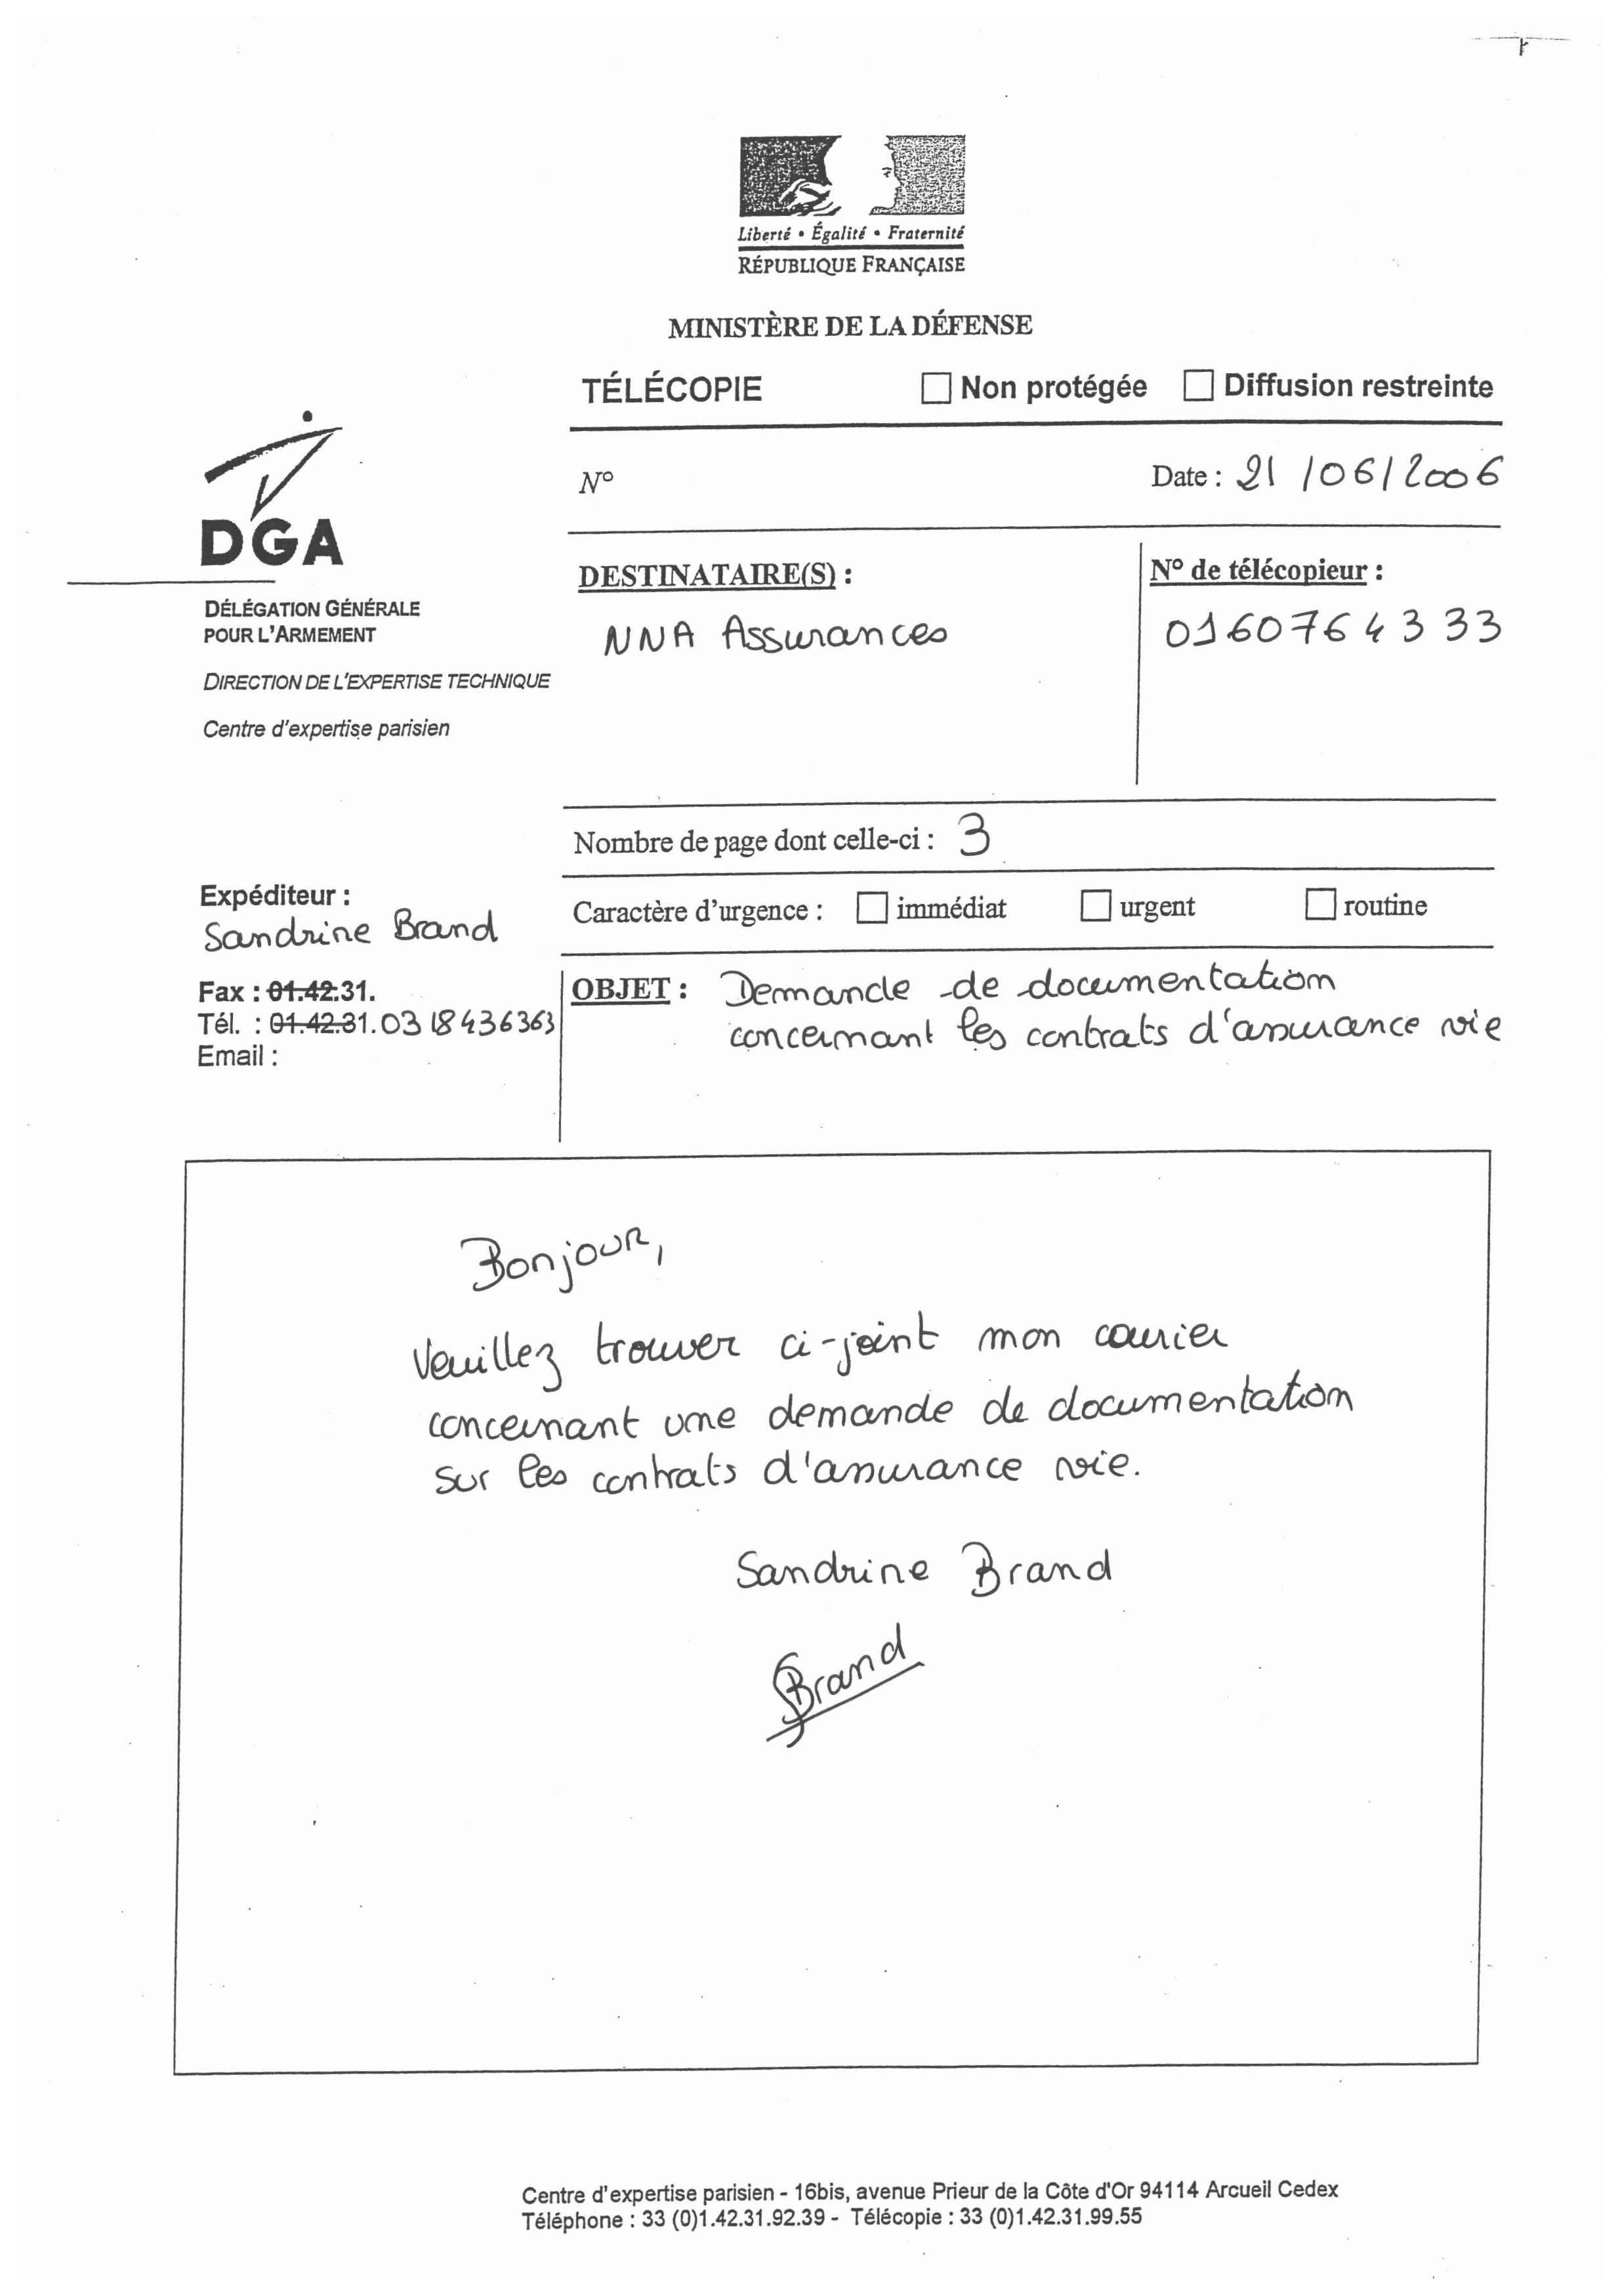 Liberté • Égalité • Fraternité
RÉPUBLIQUE FRANÇAISE
MINISTÈRE DE LA DÉFENSE
TÉLÉCOPIE ☐ Non protégée ☐ Diffusion restreinte
N° Date : 21/06/2006
DGA
DÉLÉGATION GÉNÉRALE
POUR L'ARMEMENT
DIRECTION DE L'EXPERTISE TECHNIQUE
Centre d'expertise parisien
DESTINATAIRE(S) :
NNA Assurances
N° de télécopieur :
0160764333
Nombre de page dont celle-ci : 3
Caractère d'urgence : ☐ immédiat ☐ urgent ☐ routine
Expéditeur :
Sandrine Brand
Fax : 01.42.31.
Tél. : 01.42.31. 0318436363
Email :
OBJET : Demande de documentation
concernant les contrats d'assurance vie
Bonjour,
Veuillez trouver ci-joint mon courier
concernant une demande de documentation
sur les contrats d'assurance vie.
Sandrine Brand
SBrand
Centre d'expertise parisien - 16bis, avenue Prieur de la Côte d'Or 94114 Arcueil Cedex
Téléphone : 33 (0)1.42.31.92.39 - Télécopie : 33 (0)1.42.31.99.55